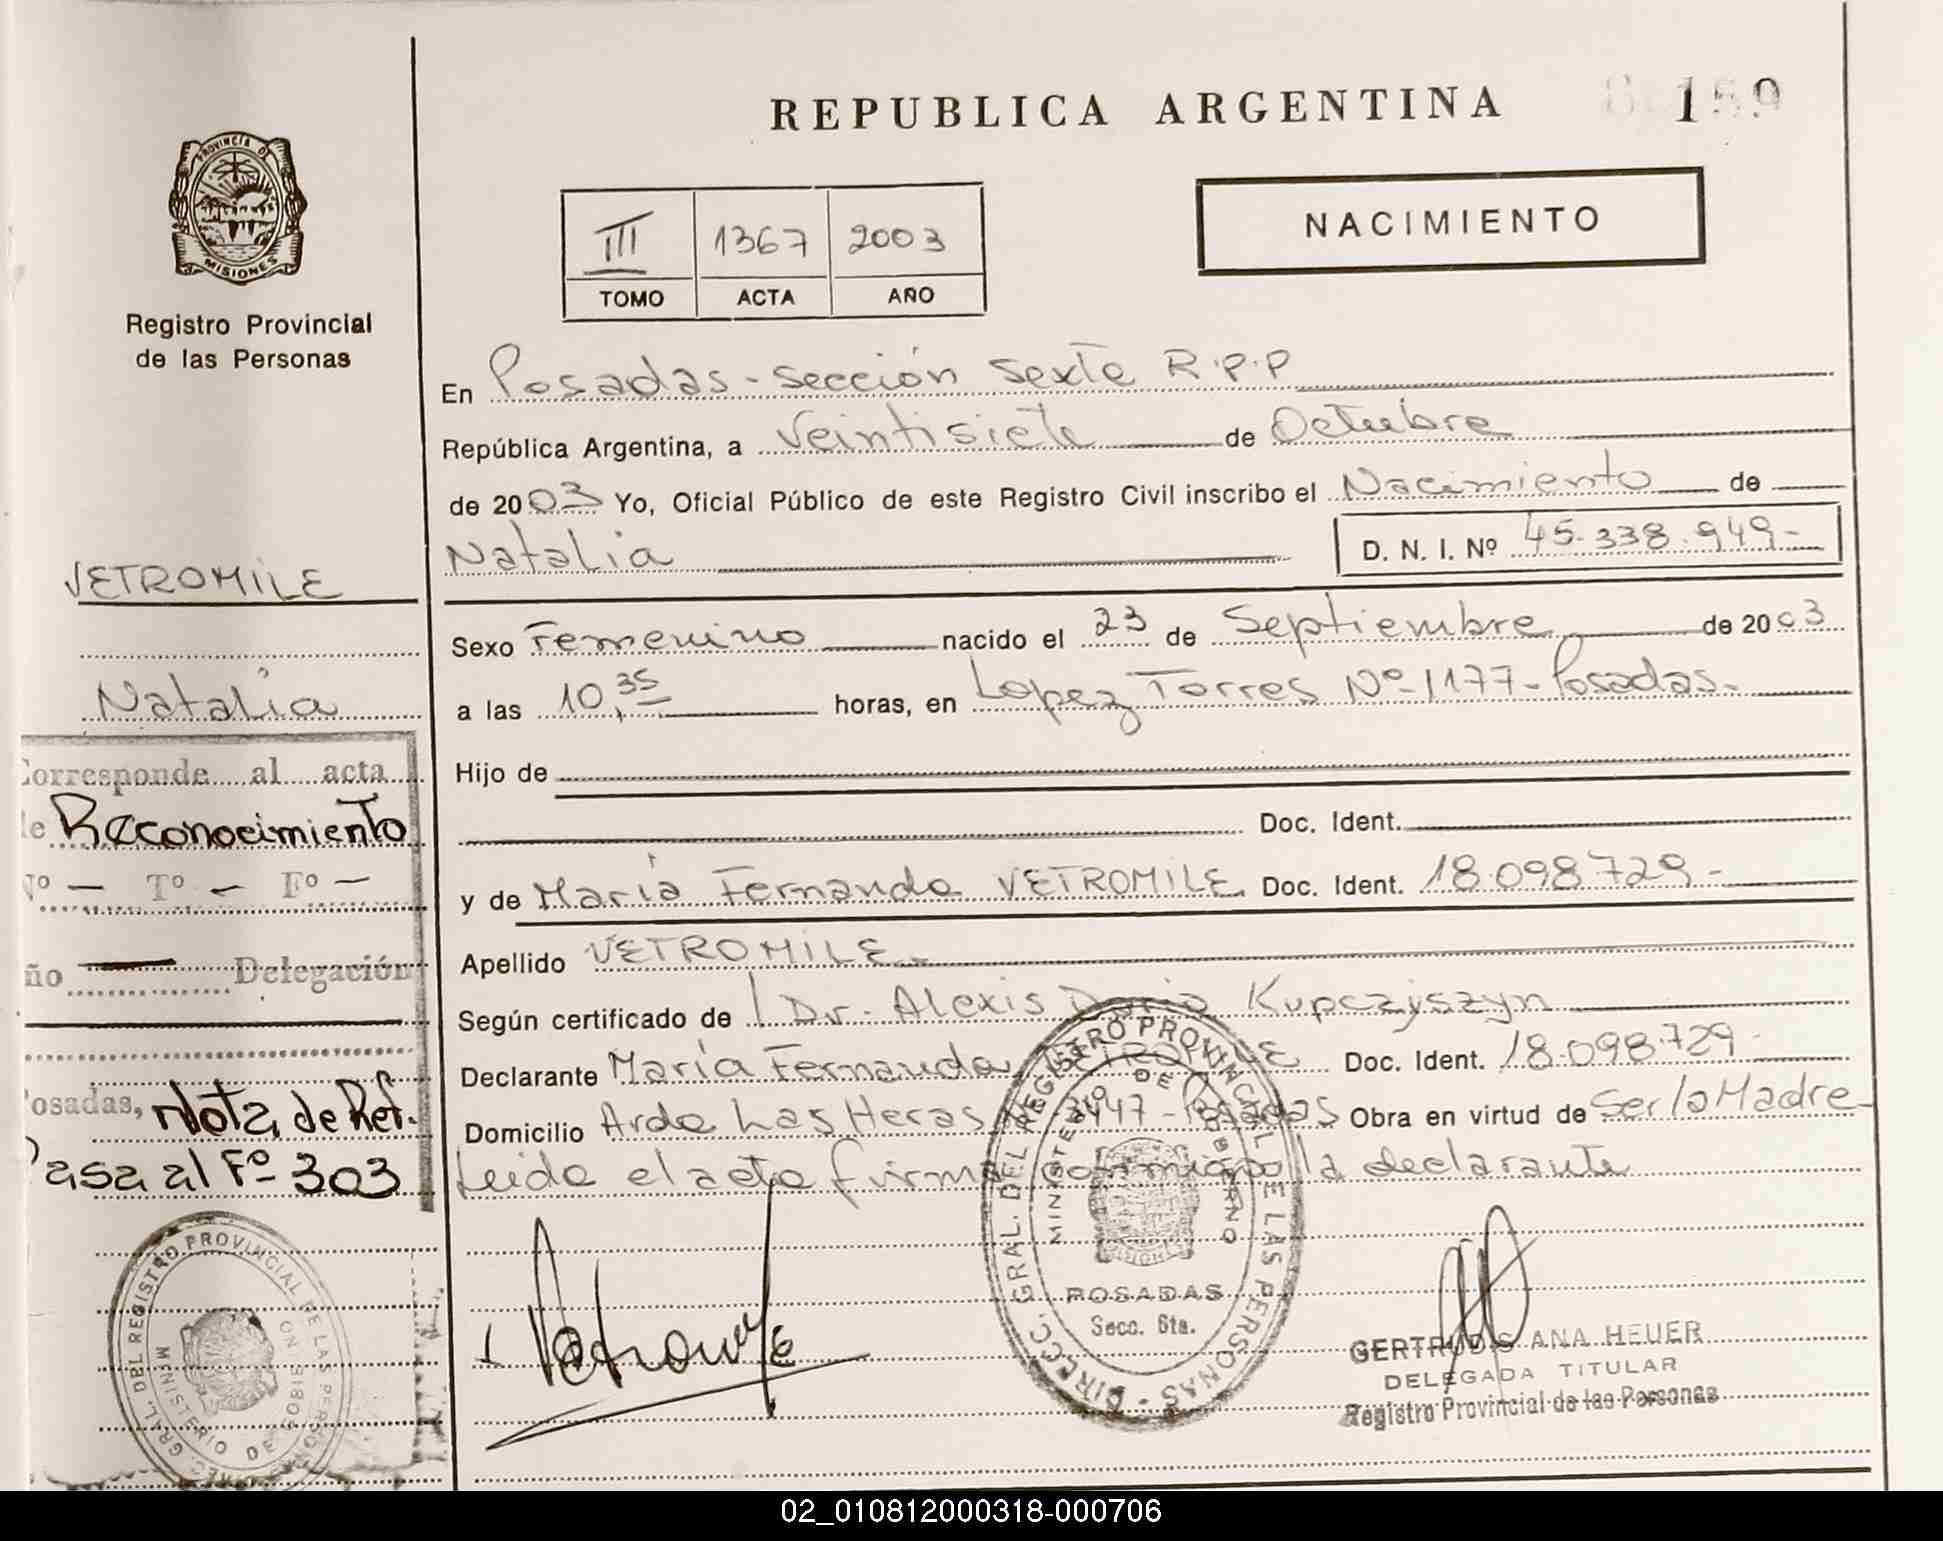 REPUBLICA ARGENTINA
159
PROVINCIA DE
MISIONES
Registro Provincial
de las Personas
III 1367 2003
TOMO ACTA AÑO
NACIMIENTO
En Posadas - Sección Sexta R.P.P
República Argentina, a Veintisiete de Octubre
de 2003 Yo, Oficial Público de este Registro Civil inscribo el Nacimiento de
Natalia D. N. I. Nº 45.338.949-
Sexo Femenino nacido el 23 de Septiembre de 2003
a las 10,35 horas, en Lopez Torres Nº 1177 - Posadas.
Hijo de
Doc. Ident.
y de María Fernanda VETROMILE Doc. Ident. 18.098.729-
Apellido VETROMILE
Según certificado de Dr. Alexis Dario Kupczyszyn
Declarante María Fernanda VETROMILE Doc. Ident. 18.098.729-
Domicilio Avda Las Heras 3447 - Posadas Obra en virtud de Ser la Madre
Leida el acta firma conmigo la declarante
VETROMILE
Natalia
Corresponde al acta
de Reconocimiento
Nº — Tº — Fº —
Año Delegación
Posadas, Nota de Ref.
Pasa al Fº 303
DIRECC. GRAL. DEL REGISTRO PROVINCIAL DE LAS PERSONAS
MINISTERIO DE GOBIERNO
MISIONES
POSADAS
Secc. 6ta.
GERTRUDIS ANA HEUER
DELEGADA TITULAR
Registro Provincial de las Personas
GRAL. DEL REGISTRO PROVINCIAL DE LAS PERSONAS
MINISTERIO DE GOBIERNO
02_010812000318-000706